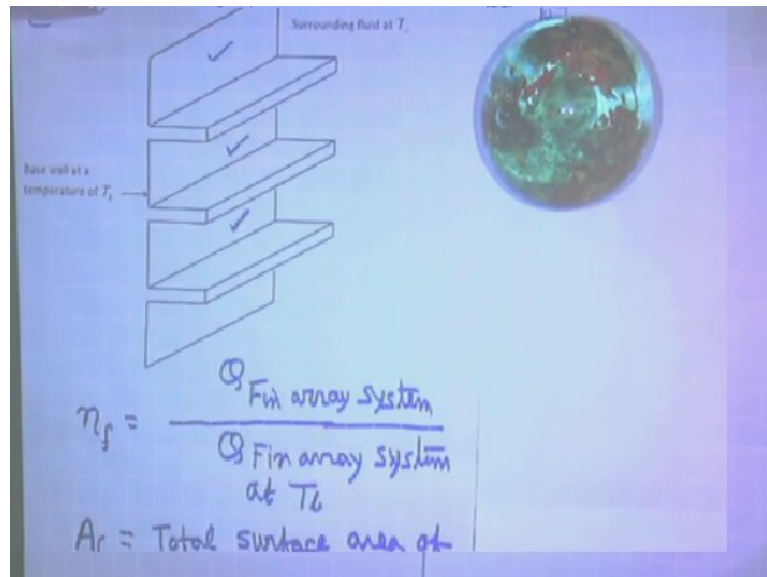 Surrounding fluid at T
Base wall at a
temperature of T
η_f = Q Fin array system
Q Fin array system
at T_b
A_f = Total surface area of